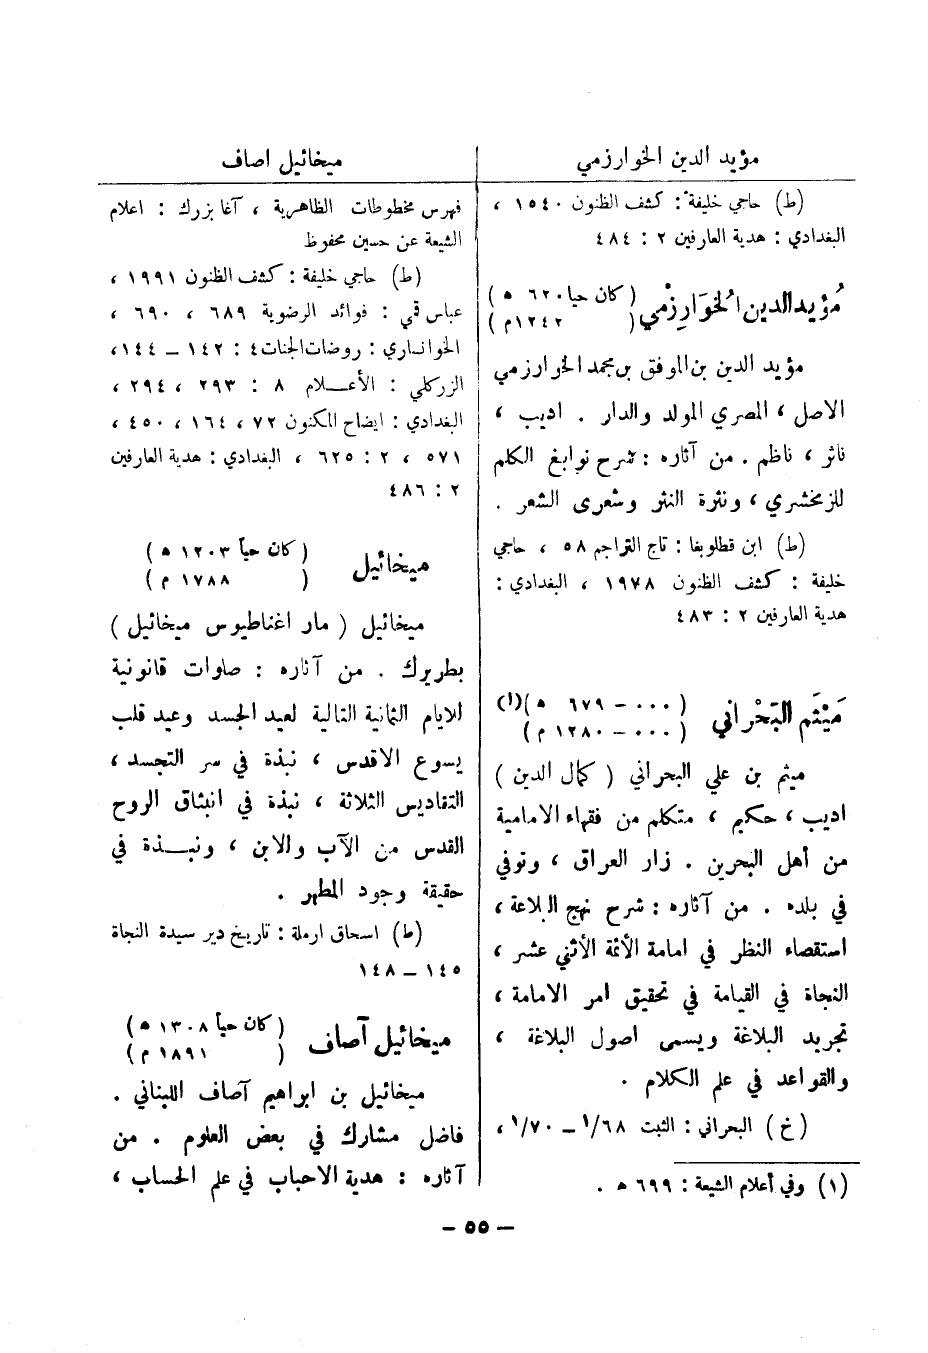 مؤيد الدين الخوارزمي
(ط) حاجي خليفة : كشف الظنون ١٥٤٠ ،
البغدادي : هدية العارفين ٢ : ٤٨٤
مُؤيد الدين الخوَارِزْمي (كان حيا ٦٢٠ ه)
( ١٢٤٢م)
مؤيد الدين بن الموفق بن محمد الخوارزمي
الاصل ، المصري المولد والدار . اديب ،
ناثر ، ناظم . من آثاره : شرح نوابغ الكلم
للزمخشري ، ونثرة النثر وشعرى الشعر .
(ط) ابن قطلوبغا : تاج التراجم ٥٨ ، حاجي
خليفة : كشف الظنون ١٩٧٨ ، البغدادي :
هدية العارفين ٢ : ٤٨٣
مَيْثَم البَحْراني (٠٠٠ - ٦٧٩ ه)(١)
(٠٠٠ - ١٢٨٠ م)
ميثم بن علي البحراني ( كمال الدين )
اديب ، حكيم ، متكلم من فقهاء الامامية
من أهل البحرين . زار العراق ، وتوفي
في بلده . من آثاره : شرح نهج البلاغة ،
استقصاء النظر في امامة الأئمة الأثني عشر ،
النجاة في القيامة في تحقيق امر الامامة ،
تجريد البلاغة ويسمى اصول البلاغة ،
والقواعد في علم الكلام .
( خ ) البحراني : الثبت ١/٦٨ - ١/٧٠ ،
(١) وفي أعلام الشيعة : ٦٩٩ ه .
ميخائيل اصاف
فهرس مخطوطات الظاهرية ، آغا بزرك : اعلام
الشيعة عن حسين محفوظ
(ط) حاجي خليفة : كشف الظنون ١٩٩١ ،
عباس قمي : فوائد الرضوية ٦٨٩ ، ٦٩٠ ،
الخوانساري : روضات الجنات ٤ : ١٤٢ - ١٤٤ ،
الزركلي : الأعـــلام ٨ : ٢٩٣ ، ٢٩٤ ،
البغدادي : ايضاح المكنون ٧٢ ، ١٦٤ ، ٤٥٠ ،
٥٧١ ، ٢ : ٦٢٥ ، البغدادي : هدية العارفين
٢ : ٤٨٦
ميخائيل (كان حيا ١٢٠٣ ه)
( ١٧٨٨ م)
ميخائيل ( مار اغناطيوس ميخائيل )
بطريرك . من آثاره : صلوات قانونية
للايام الثمانية التالية لعيد الجسد وعيد قلب
يسوع الاقدس ، نبذة في سر التجسد ،
التقاديس الثلاثة ، نبذة في انبثاق الروح
القدس من الآب والابن ، ونبـــذة في
حقيقة وجود المطهر .
(ط) اسحاق ارملة : تاريخ دير سيدة النجاة
١٤٥ - ١٤٨
ميخائيل آصاف (كان حيا ١٣٠٨ ه)
( ١٨٩١ م)
ميخائيل بن ابراهيم آصاف اللبناني .
فاضل مشارك في بعض العلوم . من
آثاره : هدية الاحباب في علم الحساب ،
- ٥٥ -